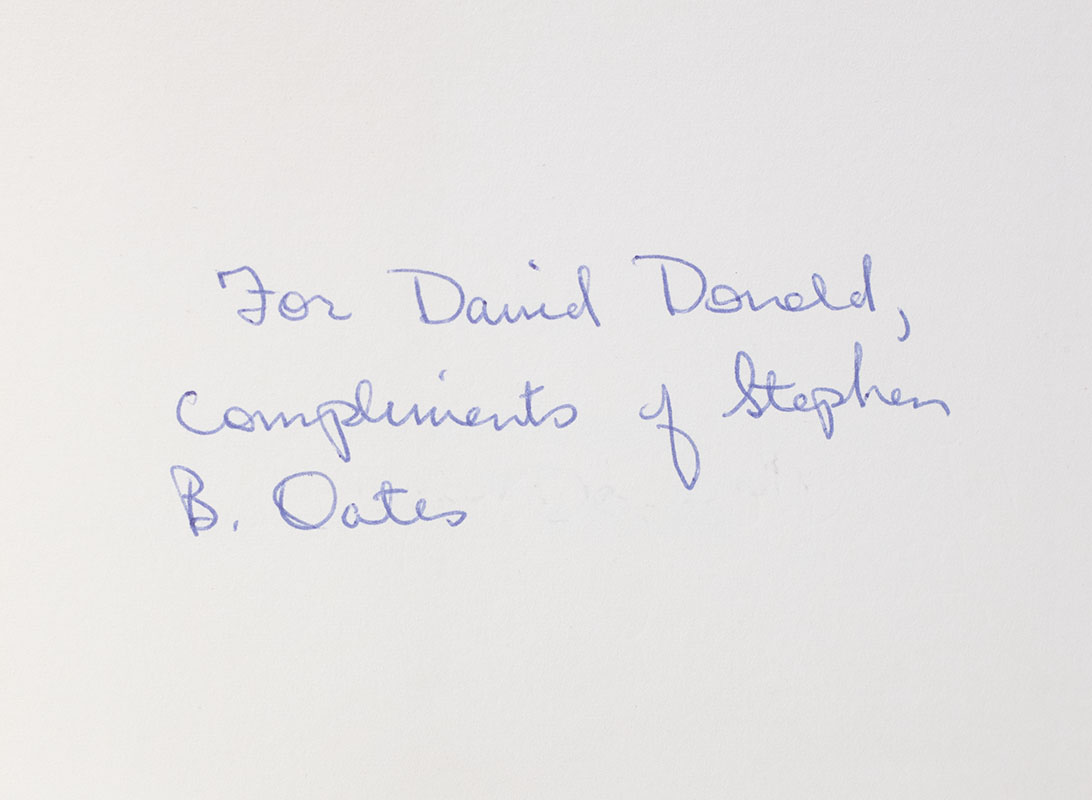 For David Donald,
compliments of Stephen
B. Oates